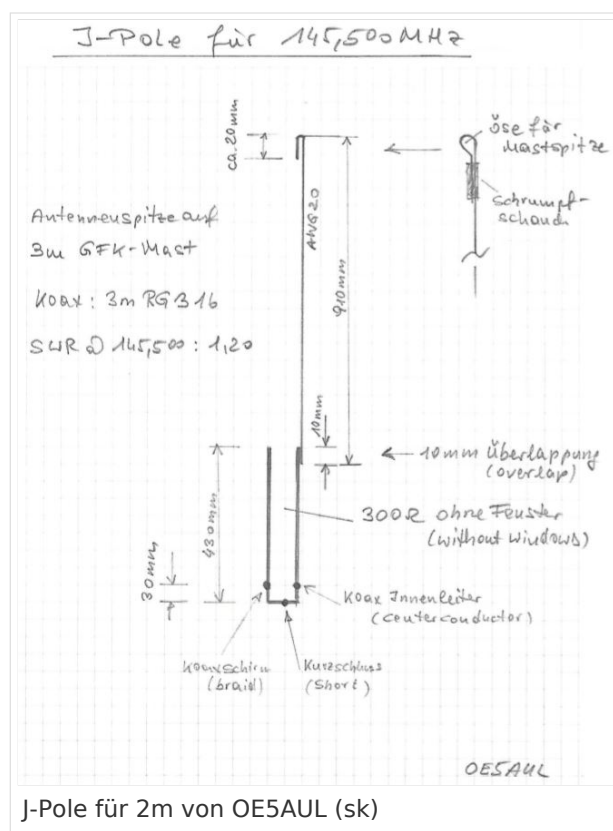 J-Pole für 145,500MHz
ca. 20mm
Öse für
Mastspitze
Schrumpf-
schlauch
AWG20
910mm
Antennenspitze auf
3m GFK-Mast
Koax: 3m RG316
SWR @ 145,500: 1,20
10mm
10mm Überlappung
(overlap)
430mm
300Ω ohne Fenster
(without windows)
30mm
Koax Innenleiter
(centerconductor)
Koaxschirm
(braid)
Kurzschluss
(short)
OE5AUL
J-Pole für 2m von OE5AUL (sk)